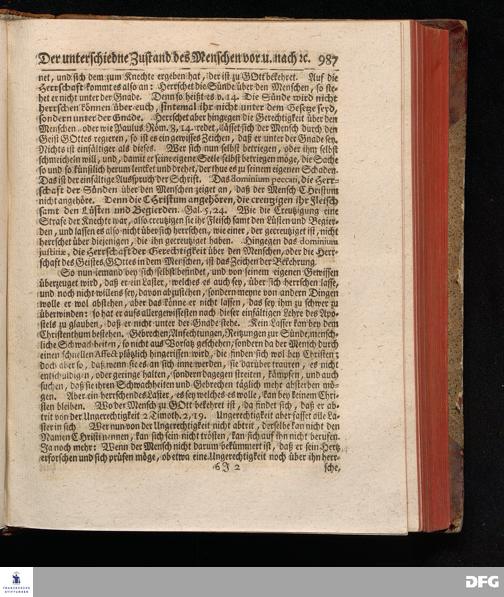 Der unterschiedne Zustand des Menschen vor u. nach ꝛc. 987
net, und sich dem zum Knechte ergeben hat, der ist zu GOtt bekehret. Auf die
Herrschaft kommt es also an: Herrschet die Sünde über den Menschen, so ste-
het er nicht unter der Gnade. Denn so heißt es v. 14. Die Sünde wird nicht
herrschen können über euch, sintemal ihr nicht unter dem Gesetze seyd,
sondern unter der Gnade. Herrschet aber hingegen die Gerechtigkeit über den
Menschen oder wie Paulus Röm. 8, 14. redet, lässet sich der Mensch durch den
Geist GOttes regieren, so ist es ein gewisses Zeichen, daß er unter der Gnade sey.
Nichts ist einfältiger als dieses. Wer sich nun selbst betriegen, oder ihm selbst
schmeicheln will, und, damit er seine eigene Seele selbst betriegen möge, die Sache
so und so künstlich herum lencket und drehet, der thue es zu seinem eigenen Schaden.
Das ist der einfältige Ausspruch der Schrift. Das dominium peccati, die Herr-
schaft der Sünden über den Menschen zeiget an, daß der Mensch Christum
nicht angehöre. Denn die Christum angehören, die creutzigen ihr Fleisch
samt den Lüsten und Begierden. Gal. 5, 24. Wie die Creutzigung eine
Strafe der Knechte war, also creutzigen sie ihr Fleisch samt den Lüsten und Begier-
den, und lassen es also nicht über sich herrschen, wie einer, der gecreutziget ist, nicht
herrschet über diejenigen, die ihn gecreutziget haben. Hingegen das dominium
justitiæ, die Herrschaft der Gerechtigkeit über den Menschen, oder die Herr-
schaft des Geistes GOttes in dem Menschen, ist das Zeichen der Bekehrung.
So nun jemand bey sich selbst befindet, und von seinem eigenen Gewissen
überzeuget wird, daß er ein Laster, welches es auch sey, über sich herrschen lasse,
und noch nicht willens sey, davon abzustehen, sondern meyne von andern Dingen
wolle er wol abstehen, aber das könne er nicht lassen, das sey ihm zu schwer zu
überwinden: so hat er aufs allergewissesten nach dieser einfältigen Lehre des Apo-
stels zu glauben, daß er nicht unter der Gnade stehe. Kein Laster kan bey dem
Christenthum bestehen. Gebrechen, Anfechtungen, Reitzungen zur Sünde, mensch-
liche Schwachheiten, so nicht aus Vorsatz geschehen, sondern da der Mensch durch
einen schnellen Affect plötzlich hingerissen wird, die finden sich wol bey Christen;
doch aber so, daß wenn sie es an sich inne werden, sie darüber trauren, es nicht
entschuldigen, oder geringe halten, sondern dagegen streiten, kämpfen, und auch
suchen, daß sie ihren Schwachheiten und Gebrechen täglich mehr absterben mö-
gen. Aber ein herrschendes Laster, es sey welches es wolle, kan bey keinem Chri-
sten bleiben. Wo der Mensch zu GOtt bekehret ist, da findet sich, daß er ab-
trit von der Ungerechtigkeit 2 Timoth. 2, 19. Ungerechtigkeit aber fasset alle La-
ster in sich. Wer nun von der Ungerechtigkeit nicht abtrit, derselbe kan nicht den
Namen Christi nennen, kan sich sein nicht trösten, kan sich auf ihn nicht berufen.
Ja noch mehr: Wenn der Mensch nicht darum bekümmert ist, daß er sein Hertz
erforschen und sich prüfen möge, ob etwa eine Ungerechtigkeit noch über ihn herr-
6 J 2 sche,
FRANCKESCHE
STIFTUNGEN
DFG